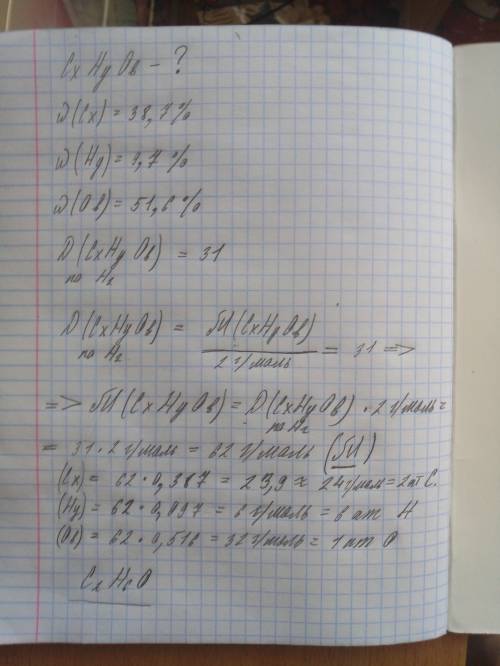 CxHyOв – ?
ω(Cx) = 38,7%
ω(Hy) = 9,7%
ω(Oв) = 51,6%
D(CxHyOв) = 31
по H2
D(CxHyOв) = M(CxHyOв) / 2 г/моль = 31 =>
по H2
=> M(CxHyOв) = D(CxHyOв) · 2 г/моль =
по H2
= 31 · 2 г/моль = 62 г/моль (M)
(Cx) = 62 · 0,387 = 23,9 ≈ 24 г/мол = 2 ат C.
(Hy) = 62 · 0,097 = 6 г/моль = 6 ат H
(Oв) = 62 · 0,516 = 32 г/моль = 1 ат O
C2H6O